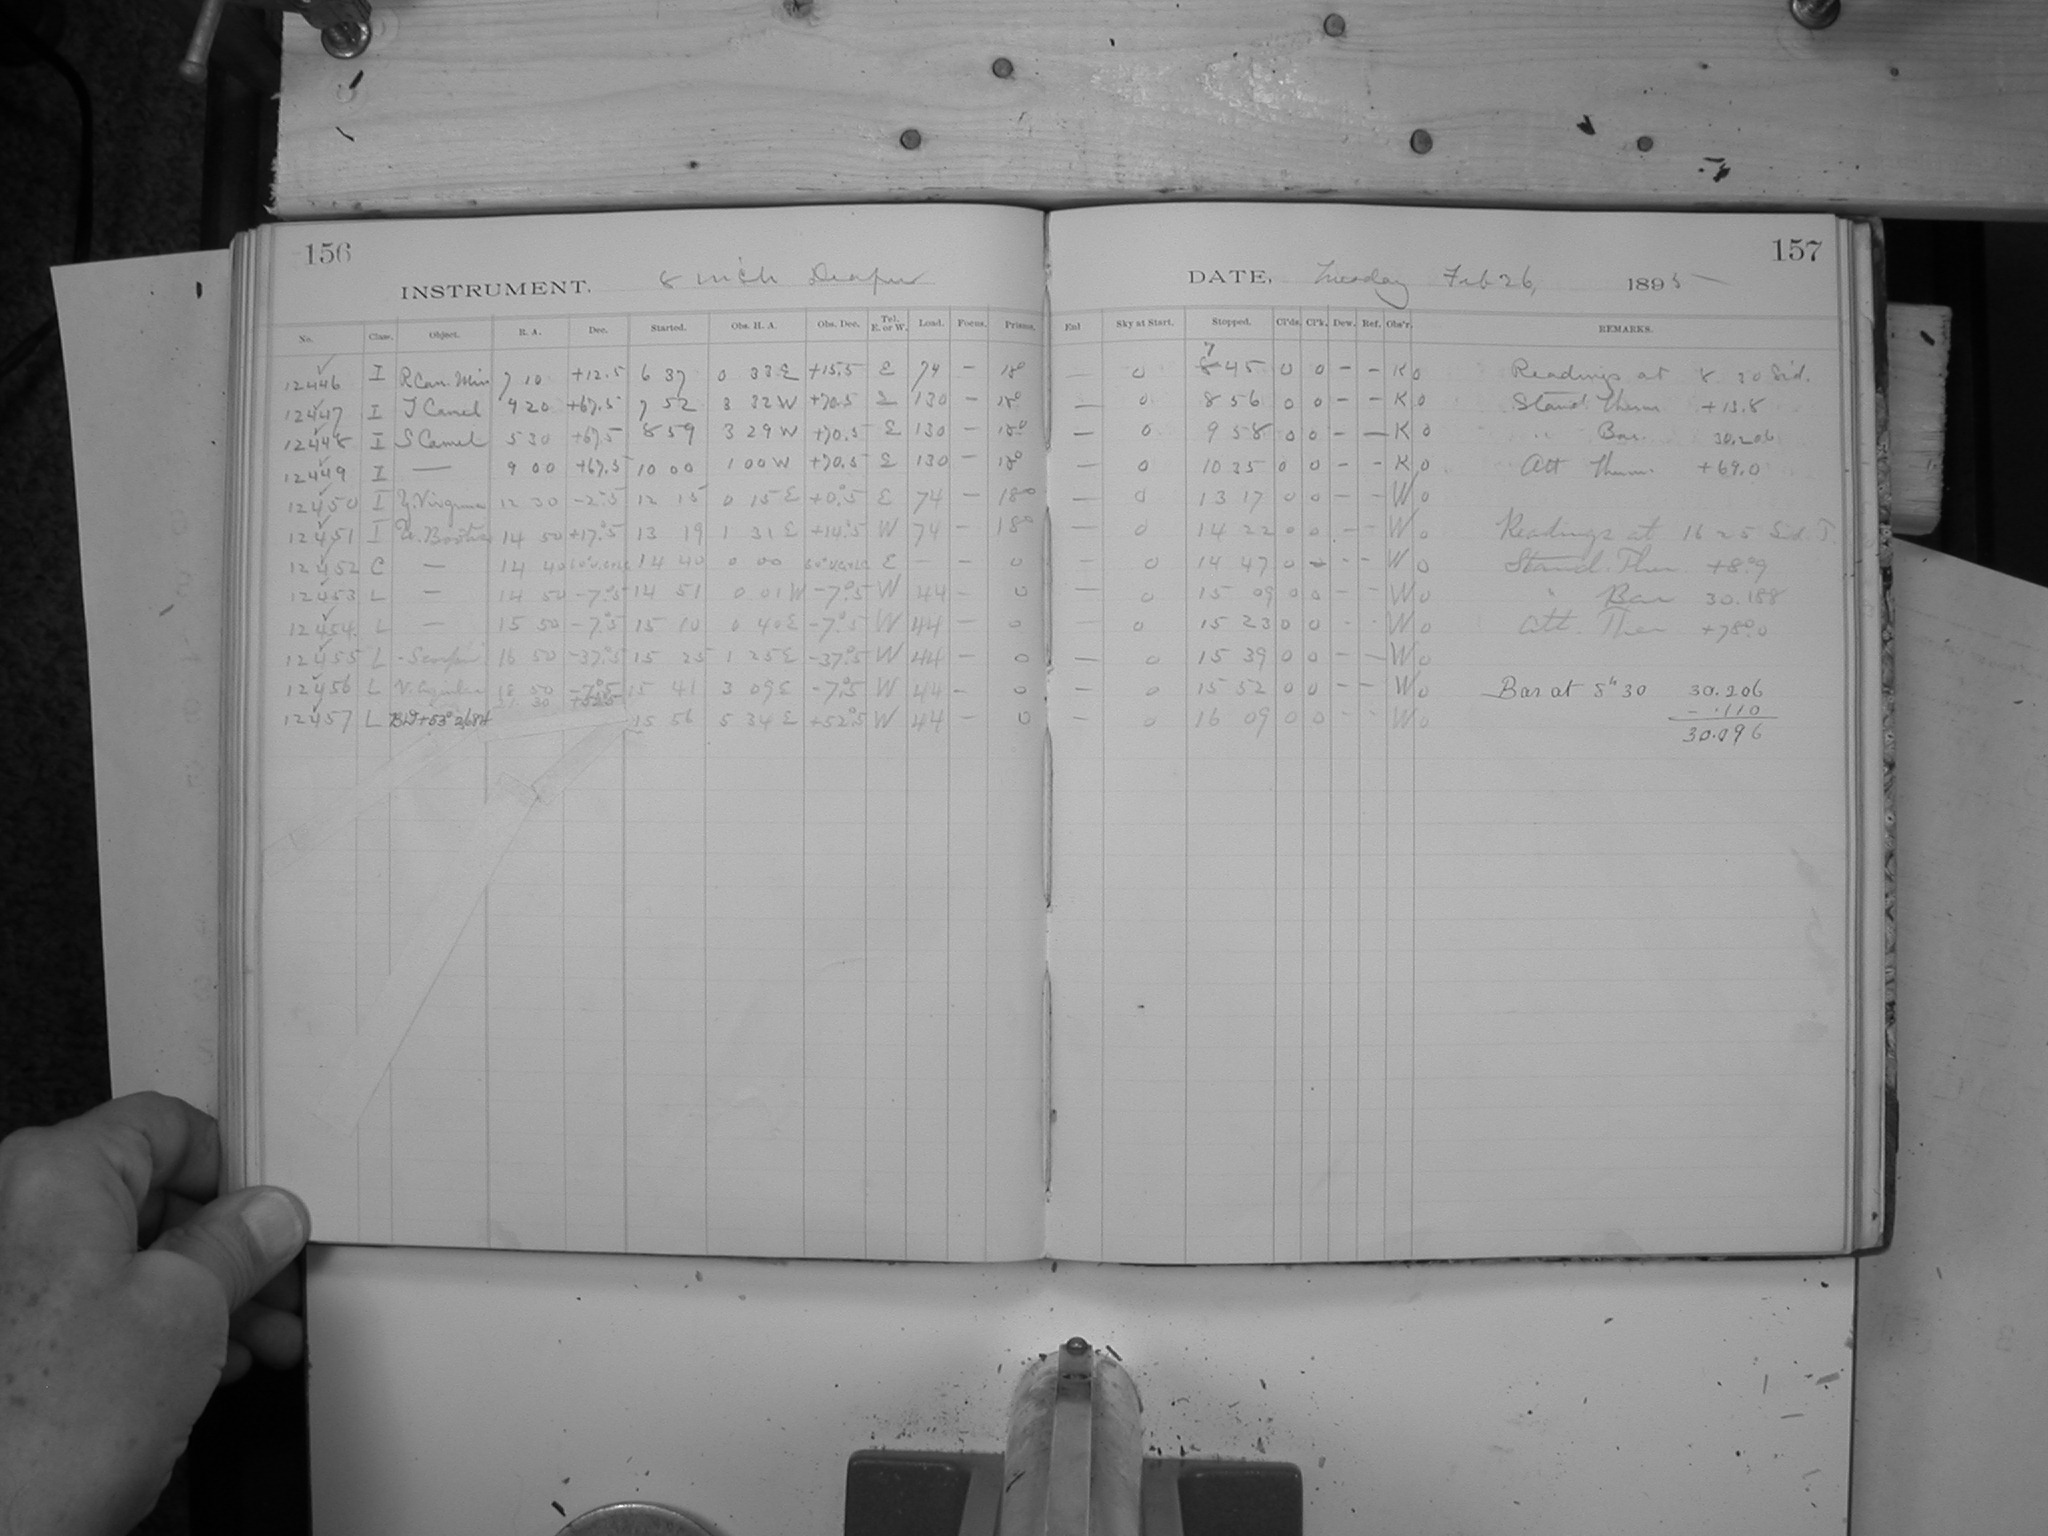 156
157
INSTRUMENT. 8 inch Draper
DATE, Tuesday Feb 26, 1895
No. Class. Object. R. A. Dec. Started. Obs. H. A. Obs. Dec. Tel. E. or W. Load. Focus. Prisms. Enl Sky at Start. Stopped. Cl'ds. Cl'k. Dew. Ref. Obs'r. REMARKS.
12446 I R Can. Min 7 10 +12.5 6 37 0 33 E +15.5 E 74 — 18° — 0 7 45 0 0 - - K 0 Readings at 8 30 Sid.
12447 I T Camel 4 20 +67.5 7 52 3 32 W +70.5 E 130 — 18° — 0 8 56 0 0 - - K 0 Stand. Therm +13.8
12448 I S Camel 5 30 +67.5 8 59 3 29 W +70.5 E 130 — 18° — 0 9 58 0 0 - — K 0 " Bar. 30.206
12449 I — 9 00 +67.5 10 00 1 00 W +70.5 E 130 — 18° — 0 10 35 0 0 - - K 0 Att Therm. +69.0
12450 I 12 30 -2°.5 12 15 0 15 E +0°.5 E 74 — 18° — 0 13 17 0 0 - - W 0
12451 I 14 50 +17°.5 13 19 1 31 E +14°.5 W 74 - 18° — 0 14 22 0 0 - - W 0 Readings at 16 25 Sid. T.
12452 C — 14 40 14 40 0 00 E — — 0 — 0 14 47 0 - - W 0 Stand. Ther +8°.9
12453 L — 14 50 -7°.5 14 51 0 01 W -7°.5 W 44 - 0 — 0 15 09 0 0 - - W 0 " Bar 30.188
12454 L — 15 50 -7°.5 15 10 0 40 E -7°.5 W 44 — 0 — 0 15 23 0 0 - - W 0 Att. Ther +78°.0
12455 L - Scorpii 16 50 -37°.5 15 25 1 25 E -37°.5 W 44 — 0 — 0 15 39 0 0 - — W 0
12456 L V. Aquilae 18 50 -7°.5 15 41 3 09 E -7°.5 W 44 - 0 — 0 15 52 0 0 - - W 0 Bar at 8h 30 30.206
21 30 +52.5 - .110
12457 L BD+53° 2684 15 56 5 34 E +52°.5 W 44 — 0 — 0 16 09 0 0 - - W 0 30.096